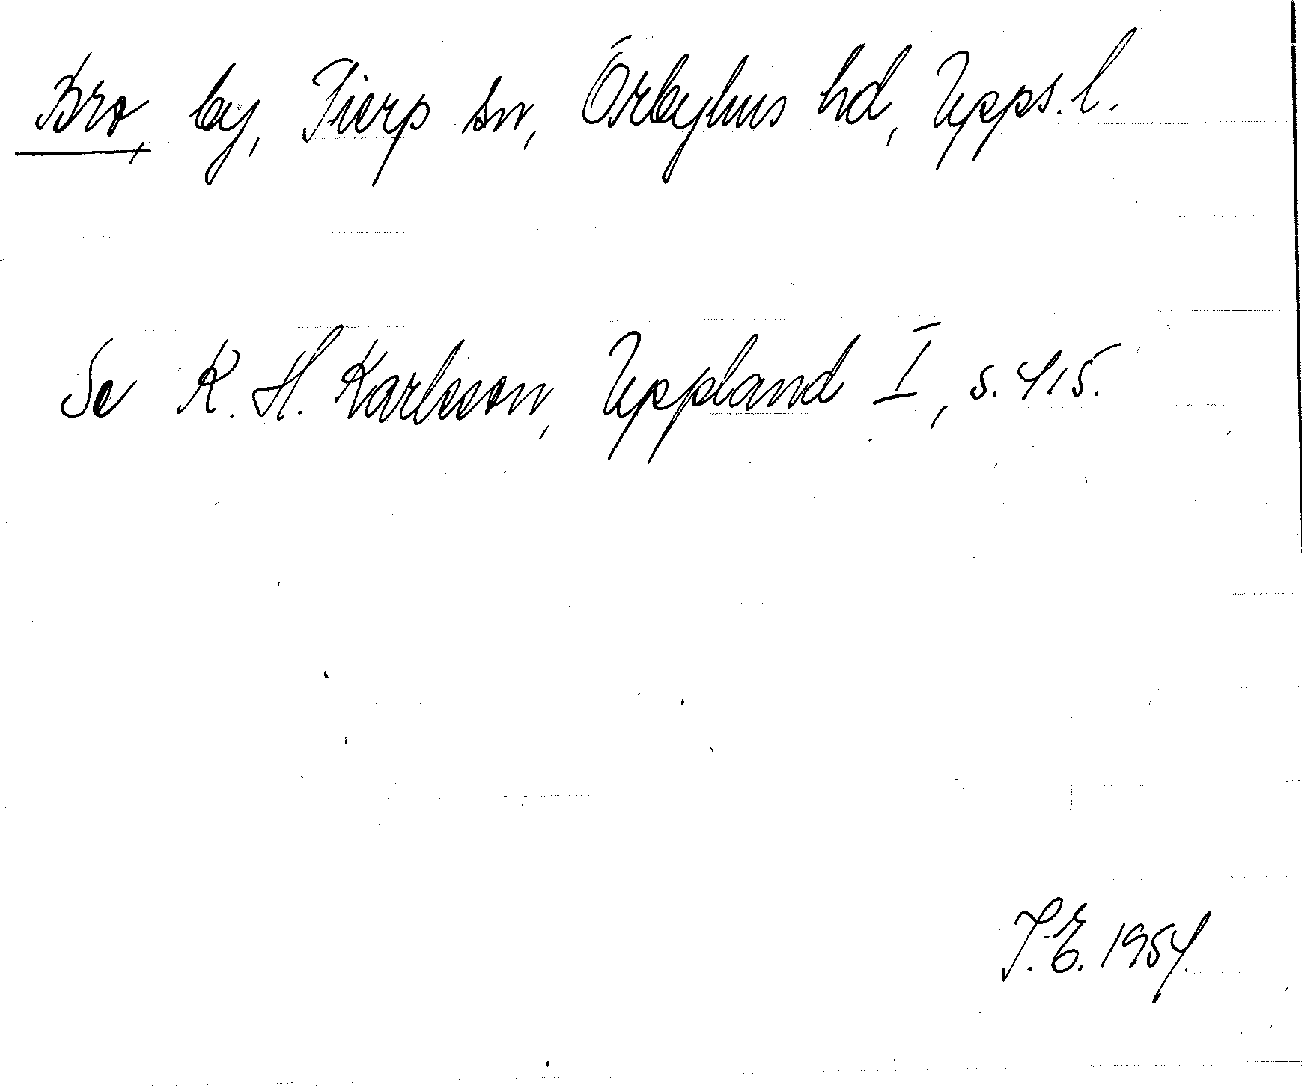 Bro, by, Tierp sn, Örbyhus hd, Upps. l.
Se K. H. Karlsson, Uppland I, s. 415.
T. E. 1954.